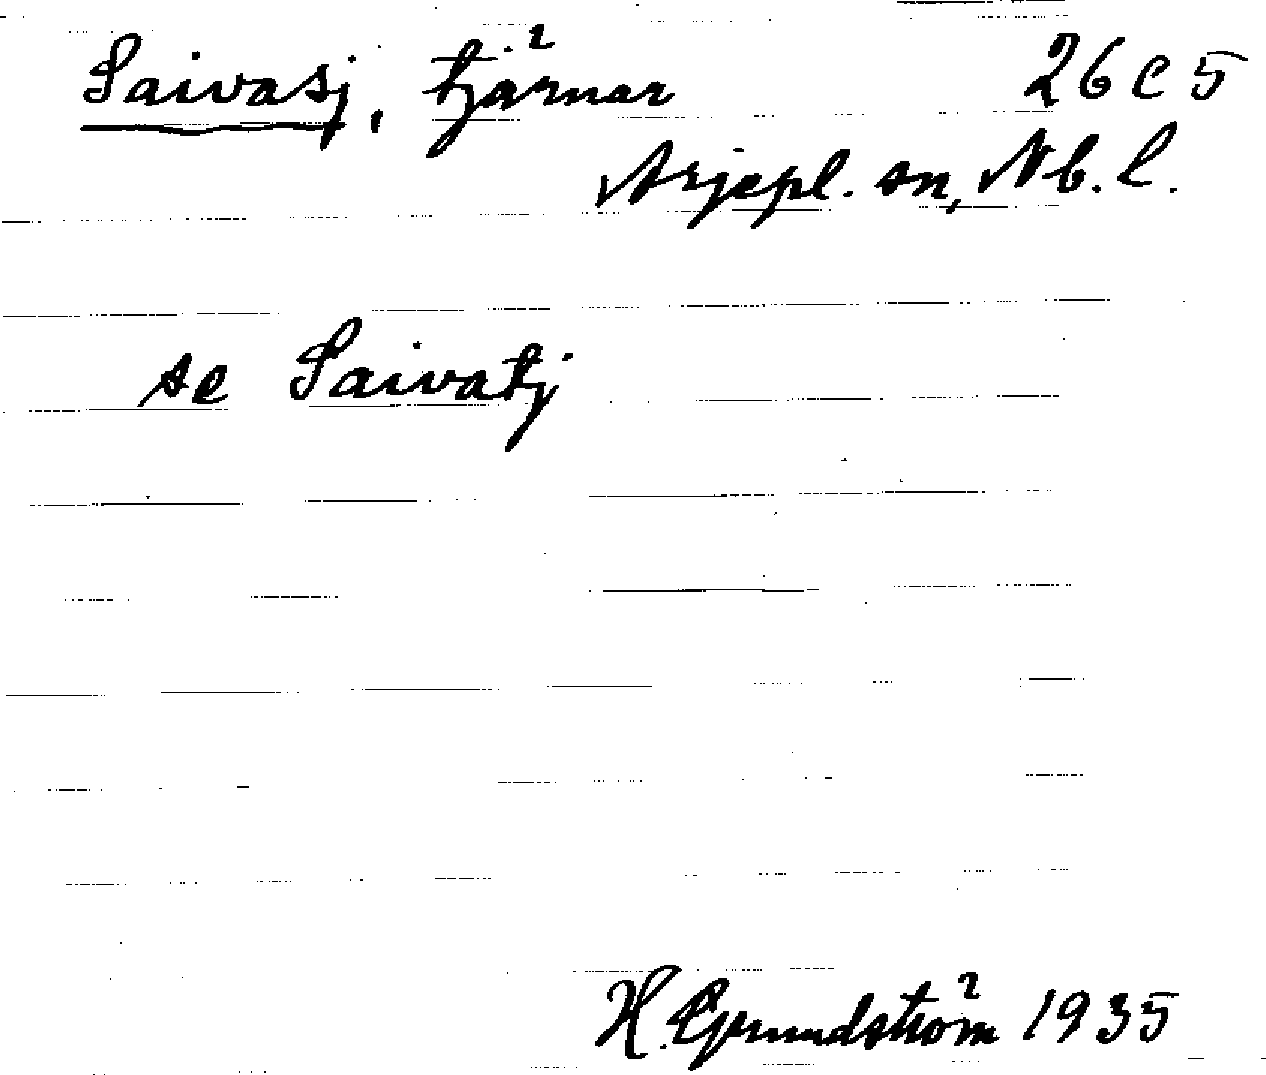 Saivasj, tjärnar 26 C 5
Arjepl. sn, Nb. l.
se Saivatj
H. Grundström 1935